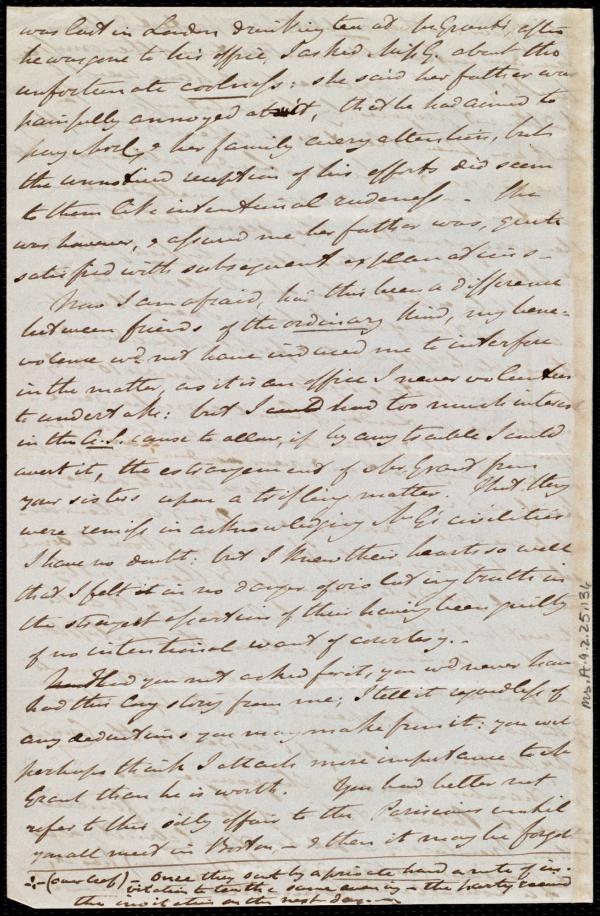 was last in London drinking tea at Mr Grant's, after
he was gone to his office, I asked Miss G. about the
unfortunate coolness: she said her father was
painfully annoyed at it, that he had aimed to
pay & her family every attention, but
the reception of his efforts did seem
to them like intentional rudeness. She
was however, & assured me her father was, quite
satisfied with subsequent explanations —
Now I am afraid, had this been a difference
between friends of the ordinary kind, my bene=
volence wd not have induced me to interfere
in the matter, as it is an office I never volunteer
to undertake: but I had too much interest
in the A.S. cause to allow, if by any trouble I could
avert it, the estrangement of Mr. Grant from
your sisters upon a trifling matter. That they
were remiss in acknowledging Mr G's civilities
I have no doubt: but I knew their hearts so well
that I felt it in no danger of violating truth in
the strongest assertions of their having been guilty
of no intentional want of courtesy. —
Had you not asked for it, you wd never have
had this long story from me; I tell it regardless of
any deductions you may make from it: you will
perhaps think I attach more importance to Mr
Grant than he is worth. You had better not
refer to this silly affair to the Parisians until
you all meet in Boston — & then it may be forgot
(over leaf) — Once they sent by a private hand a note of in-
vitation to tea the same evening — the party received
the invitation on the next day. —
Ms. A.9.2.25.134